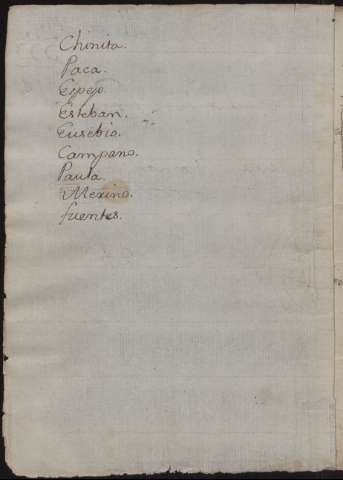 Chinita.
Paca.
Espejo
Esteban.
Eusebio.
Campano.
Paula.
Merino.
fuentes.